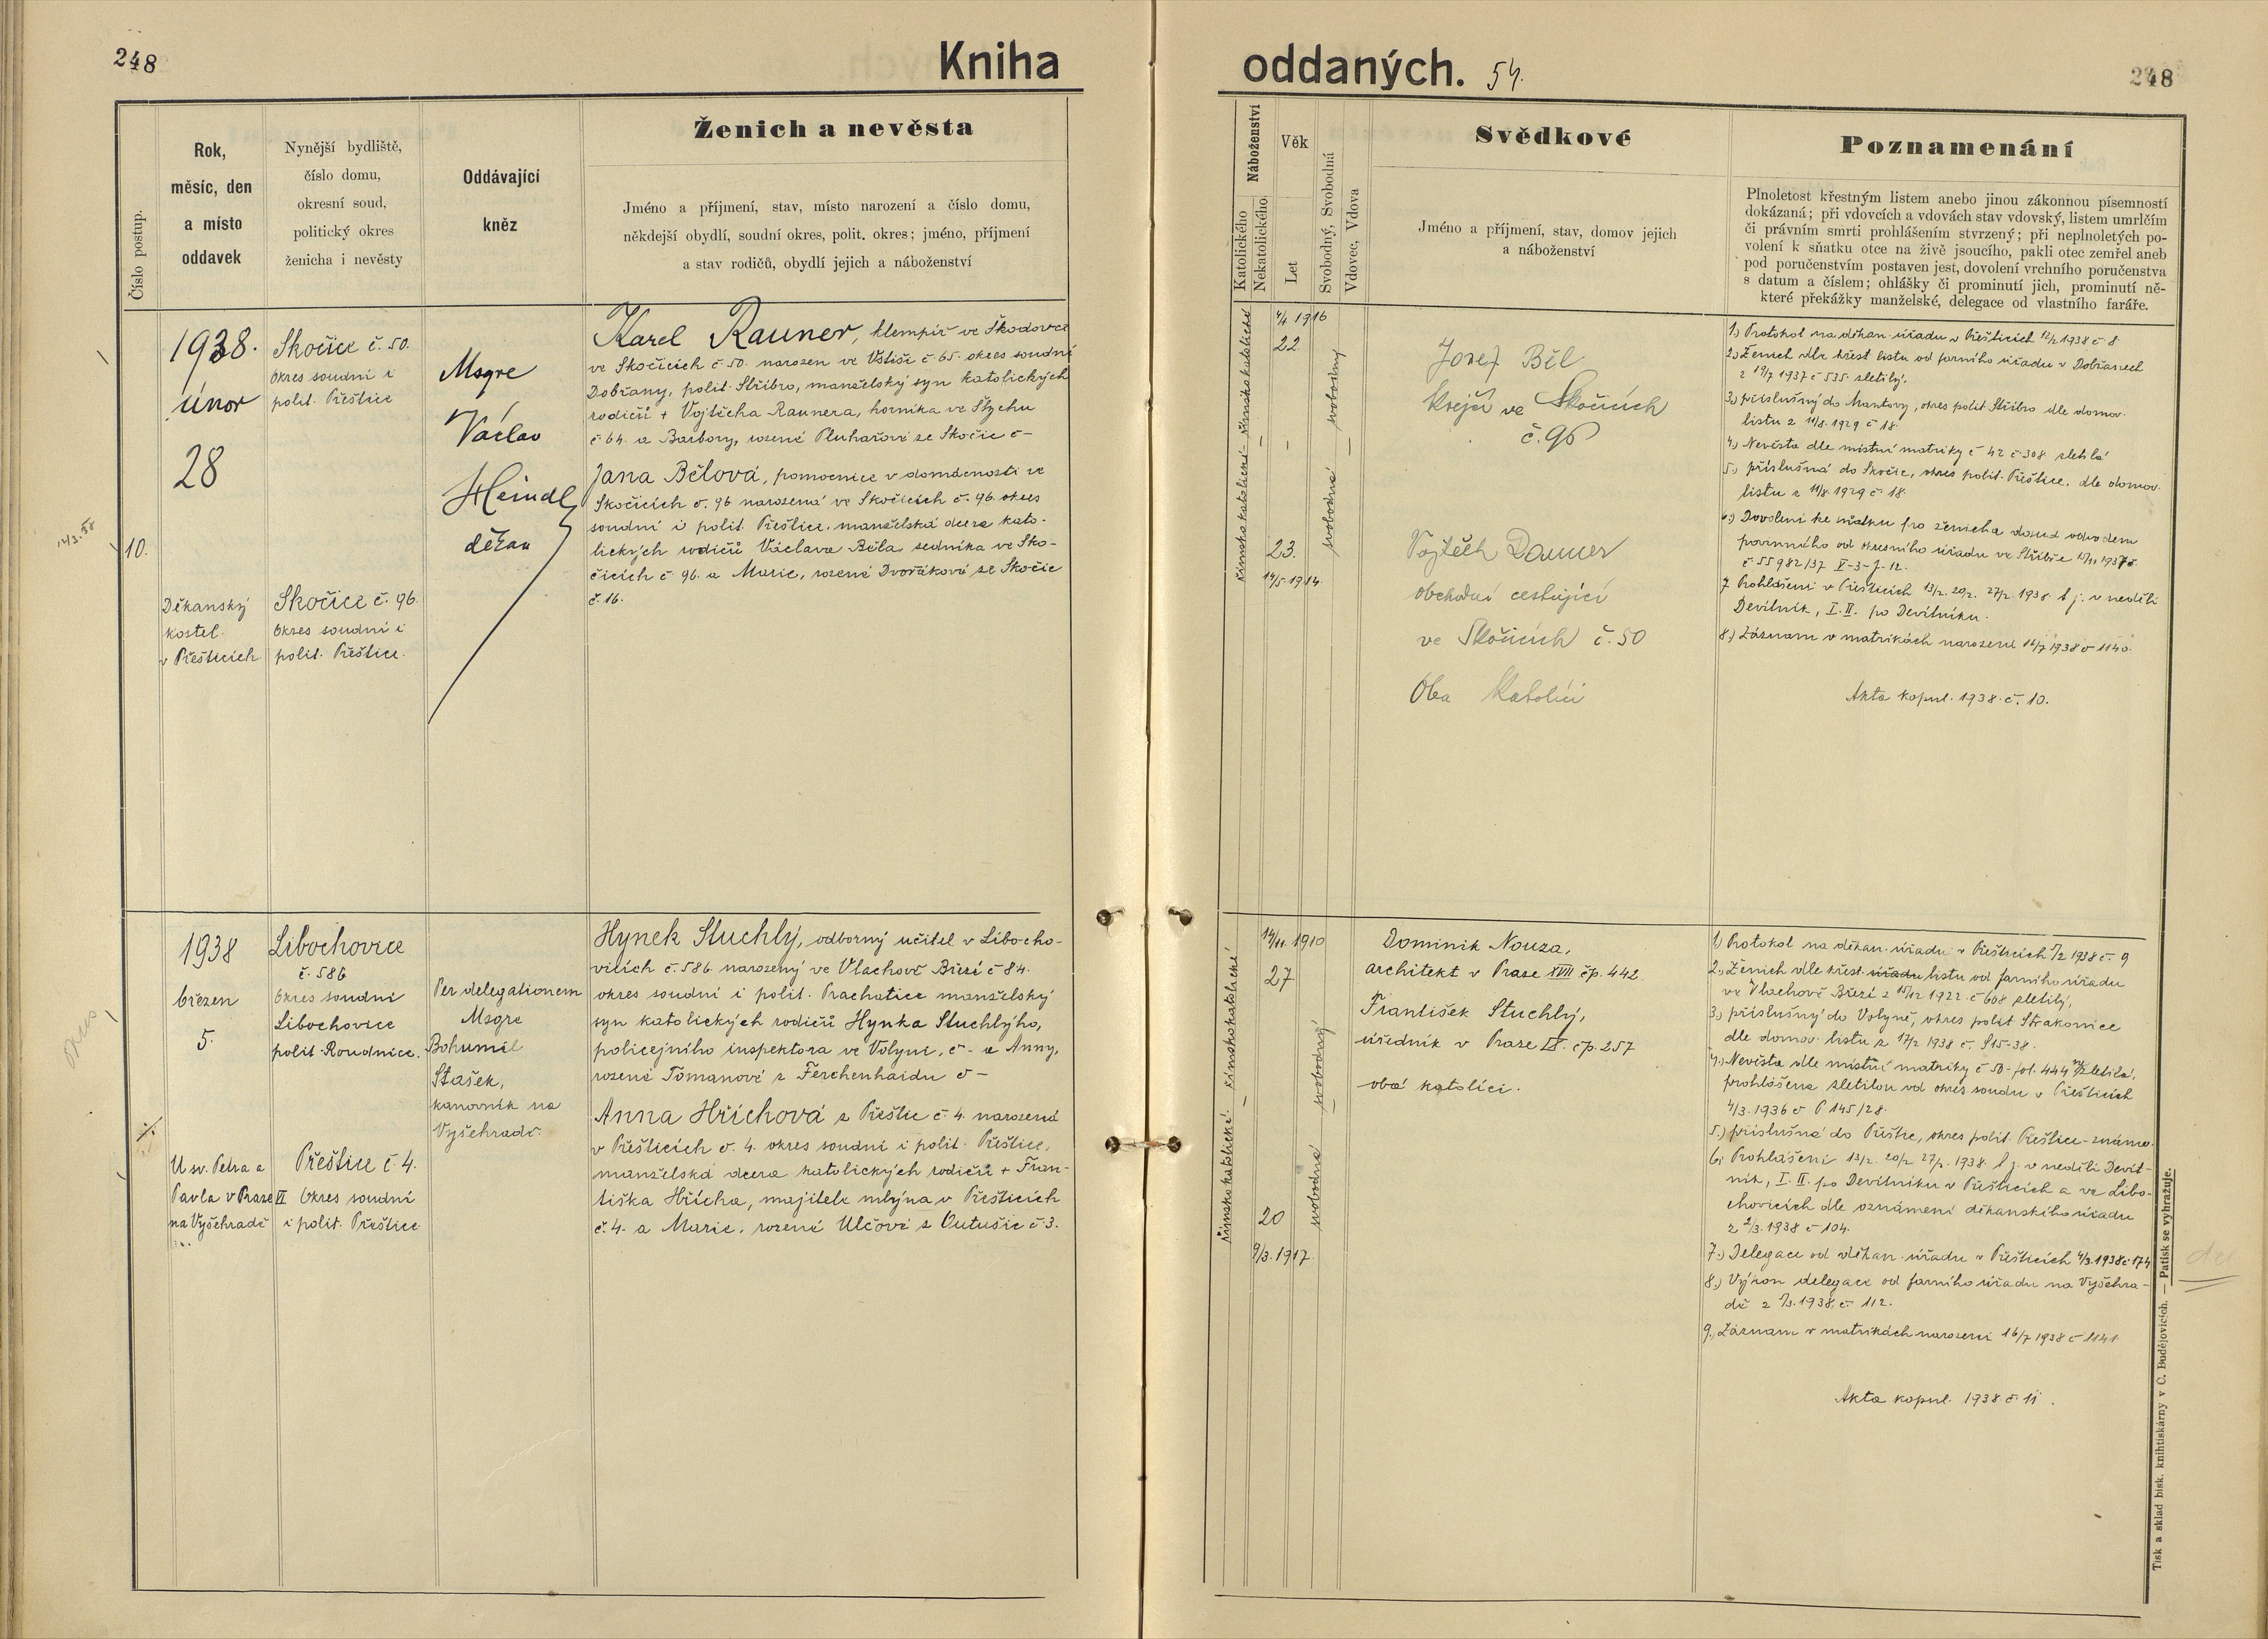 248
Kniha
oddaných. 54.
248
Číslo postup.
Rok,
měsíc, den
a místo
oddavek
Nynější bydliště,
číslo domu,
okresní soud,
politický okres
ženicha i nevěsty
Oddávající
kněz
Ženich a nevěsta
Jméno a příjmení, stav, místo narození a číslo domu,
někdejší obydlí, soudní okres, polit. okres; jméno, příjmení
a stav rodičů, obydlí jejich a náboženství
Náboženství
Katolického
Nekatolického
Věk
Let
Svobodný, Svobodná
Vdovec, Vdova
Svědkové
Jméno a příjmení, stav, domov jejich
a náboženství
Poznamenání
Plnoletost křestným listem anebo jinou zákonnou písemností
dokázaná; při vdovcích a vdovách stav vdovský, listem umrlčím
či právním smrti prohlášením stvrzený; při neplnoletých po-
volení k sňatku otce na živě jsoucího, pakli otec zemřel aneb
pod poručenstvím postaven jest, dovolení vrchního poručenstva
s datum a číslem; ohlášky či prominutí jich, prominutí ně-
které překážky manželské, delegace od vlastního faráře.
10.
1938.
únor
28
Děkanský
kostel
v Přešticích
Skočice č. 50.
Okres soudní i
polit. Přeštice
Skočice č. 96.
Okres soudní i
polit. Přeštice.
Msgre
Václav
Heindl
děkan
Karel Rauner, klempíř ve Škodovce
ve Skočicích č. 50. narozen ve Vstiši č 65. okres soudní
Dobřany, polit. Stříbro, manželský syn katolických
rodičů + Vojtěcha Raunera, horníka ve Štychu
č 64. a Barbory, rozené Pluhařové ze Skočic č –
Jana Bělová, pomocnice v domácnosti ve
Skočicích č. 96 narozená ve Skočicích č. 96. okres
soudní i polit. Přeštice. manželská dcera kato-
lických rodičů Václava Běla, sedníka ve Sko-
čicích č. 96. a Marie, rozené Dvořákové ze Skočic
č. 16.
římskokatolické
římskokatolické
4/4 1916
22
23.
14/5.1914.
svobodný
svobodná
Josef Běl
krejčí ve Skočicích
č. 96
Vojtěch Rauner
obchodní cestující
ve Skočicích č. 50
Oba katolíci
1.) Protokol na děkan. úřadu v Přešticích 12/2 1938 č. 8
2.) Ženich dle křest. listu od farního úřadu v Dobřanech
z 19/7 1937 č 535. zletilý.
3.) příslušný do Mantovy, okres polit Stříbro dle domov.
listu z 11/8. 1929 č 18.
4.) Nevěsta dle místní matriky č 42 č 308 zletilá
5.) příslušná do Skočic, okres polit. Přeštice. dle domov.
listu z 11/8. 1929 č. 18.
6.) Dovolení ke sňatku pro ženicha dosud odvodem
povinného od okresního úřadu ve Stříbře
č. 55982/37 V-3-J-12.
7. Prohlášení v Přešticích 13/2. 20/2. 27/2. 1938. t. j. v neděli
Devítník, I. II. po Devítníku.
8.) Záznam v matrikách narozené 16/7 1938 č 1140.
Akta kopul. 1938. č. 10.
1938
březen
5.
U sv. Petra a
Pavla v Praze VI
na Vyšehradě
Libochovice
č. 586
Okres soudní
Libochovice
polit. Roudnice.
Přeštice č. 4.
Okres soudní
i polit. Přeštice
Per delegationem
Msgre
Bohumil
Stašek,
kanovník na
Vyšehradě.
Hynek Stuchlý, odborný učitel v Libocho-
vicích č. 586. narozený ve Vlachově Březí č 84.
okres soudní i polit. Prachatice manželský
syn katolických rodičů Hynka Stuchlýho,
policejního inspektora ve Volyni, č – a Anny,
rozené Tomanové z Ferchenhaidu č –
Anna Hříchová z Přeštic č. 4. narozená
v Přešticích č. 4. okres soudní i polit. Přeštice,
manželská dcera katolických rodičů + Fran-
tiška Hřícha, majitele mlýna v Přešticích
č. 4. a Marie, rozené Ulčové z Outušic č 3.
římskokatolické
římskokatolické
14/11. 1910
27
20
9/3. 1917.
svobodný
svobodná
Dominik Nouza,
architekt v Praze XVII čp. 442.
František Stuchlý,
úředník v Praze IX. čp. 257
oba katolíci.
1.) Protokol na děkan. úřadu v Přešticích 7/2 1938 č. 9
2.) Ženich dle křest. úřadu listu od farního úřadu
ve Vlachově Březí z 15/12 1922. č 608 zletilý,
3.) příslušný do Volyně, okres polit Strakonice
dle domov. listu z 17/2 1938 č. 815-38.
4.) Nevěsta dle místní matriky č 50 - fol. 444 zletilá,
prohlášena zletilou od okres soudu v Přešticích
4/3. 1936 č P 145/28.
5.) příslušná do Přeštic, okres polit. Přeštice - známo.
6. Prohlášení 13/2. 20/2 27/2. 1938. t. j. v neděli Devít-
ník, I. II. po Devítníku v Přešticích a ve Libo-
chovicích dle oznámení děkanského úřadu
z 2/3. 1938 č 104.
7.) Delegace od děkan. úřadu v Přešticích 4/3. 1938 č 174
8.) Výkon delegace od farního úřadu na Vyšehra-
dě z 7/3. 1938. č. 112.
9.) Záznam v matrikách narození 16/7 1938 č 1141
Akta kopul. 1938 č. 11.
Tisk a sklad bisk. knihtiskárny v Č. Budějovicích. — Patisk se vyhražuje.